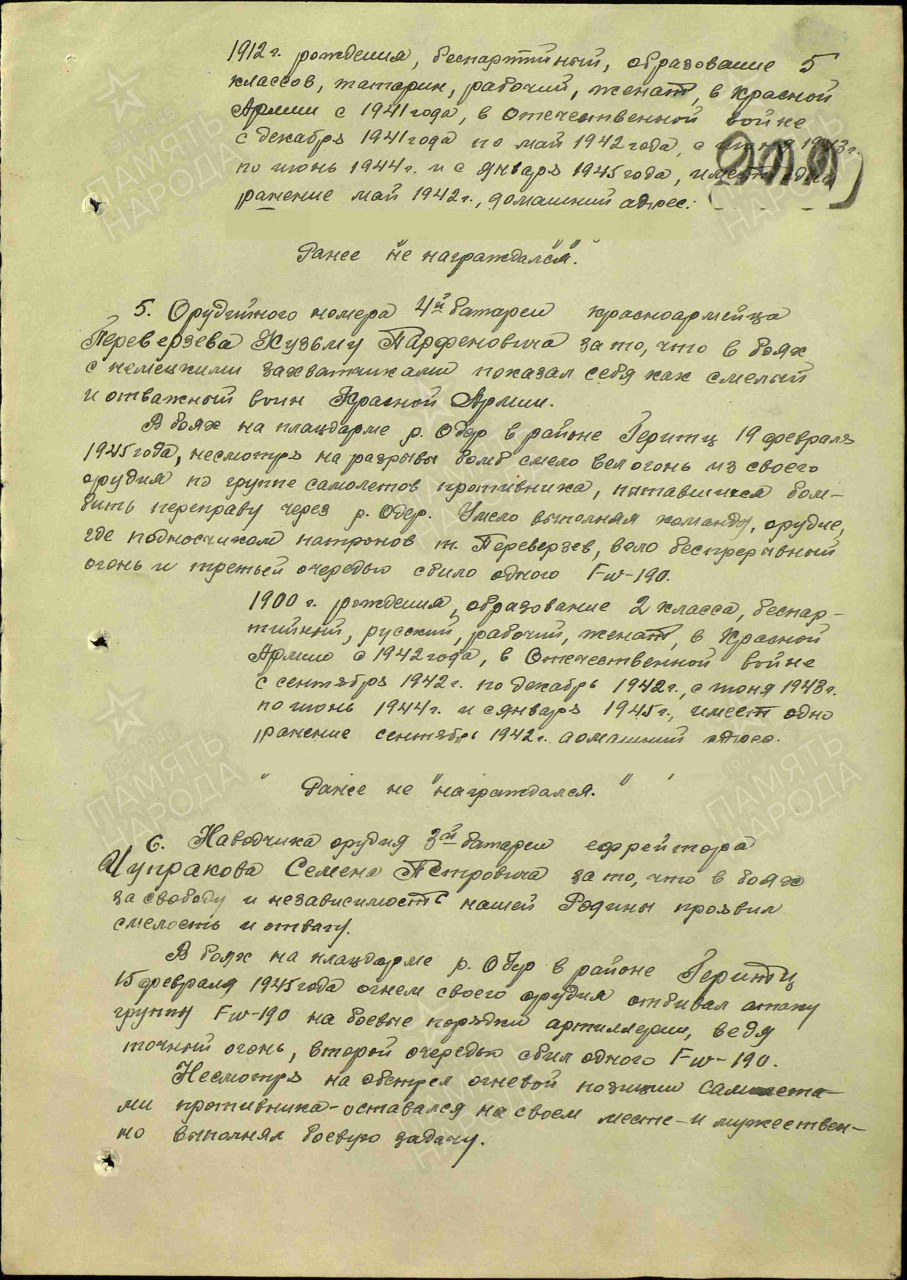 1912 г. рождения, беспартийный, образование 5
классов, татарин, рабочий, женат, в Красной
Армии с 1941 года, в Отечественной войне
с декабря 1941 года по май 1942 года, с июня 1943 г.
по июнь 1944 г. и с январь 1945 года, имеет одно
ранение май 1942 г., домашний адрес:
Ранее "не награждался".
5. Орудийного номера 4й батареи красноармейца
Переверзева Кузьму Парфеновича за то, что в боях
с немецкими захватчиками показал себя как смелый
и отважный воин Красной Армии.
В боях на плацдарме р. Одер в районе Геритц 19 февраля
1945 года, несмотря на разрывы бомб смело вел огонь из своего
орудия по группе самолетов противника, пытавшихся бом-
бить переправу через р. Одер. Умело выполняя команду, орудие,
где подносчиком патронов т. Переверзев, вело беспрерывный
огонь и третьей очередью сбило одного Fw-190.
1900 г. рождения, образование 2 класса, беспар-
тийный, русский, рабочий, женат, в Красной
Армии с 1942 года, в Отечественной войне
с сентября 1942 г. по декабрь 1942 г., с июня 1943 г.
по июнь 1944 г. и с январь 1945 г., имеет одно
ранение сентябрь 1942 г. домашний адрес.
Ранее не "награждался."
6. Наводчика орудия 3й батареи ефрейтора
Чупракова Семена Петровича за то, что в боях
за свободу и независимость нашей Родины проявил
смелость и отвагу.
В боях на плацдарме р. Одер в районе Геритц
15 февраля 1945 года огнем своего орудия отбивал атаку
группу Fw-190 на боевые порядки артиллерии, ведя
точный огонь, второй очередью сбил одного Fw-190.
Несмотря на обстрел огневой позиции самолета-
ми противника - оставался на своем месте - и мужествен-
но выполнял боевую задачу.
ПАМЯТЬ
НАРОДА
ПАМЯТЬ
НАРОДА
ПАМЯТЬ
НАРОДА
ПАМЯТЬ
НАРОДА